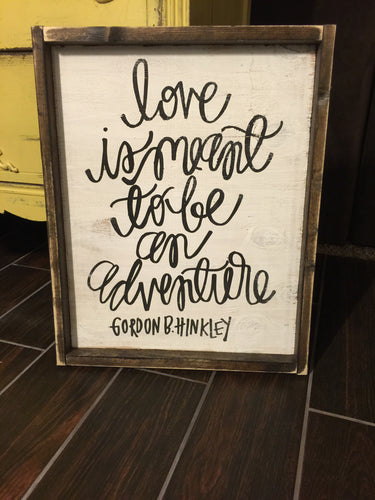 love
is meant
to be
an
adventure
GORDON B. HINKLEY